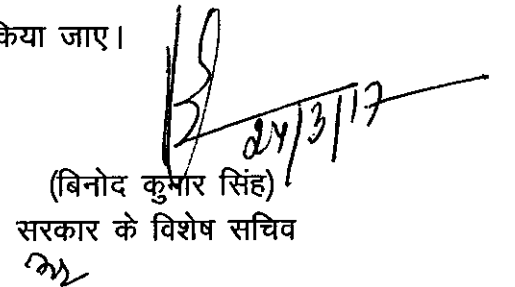 किया जाए।
24/3/17
(बिनोद कुमार सिंह)
सरकार के विशेष सचिव